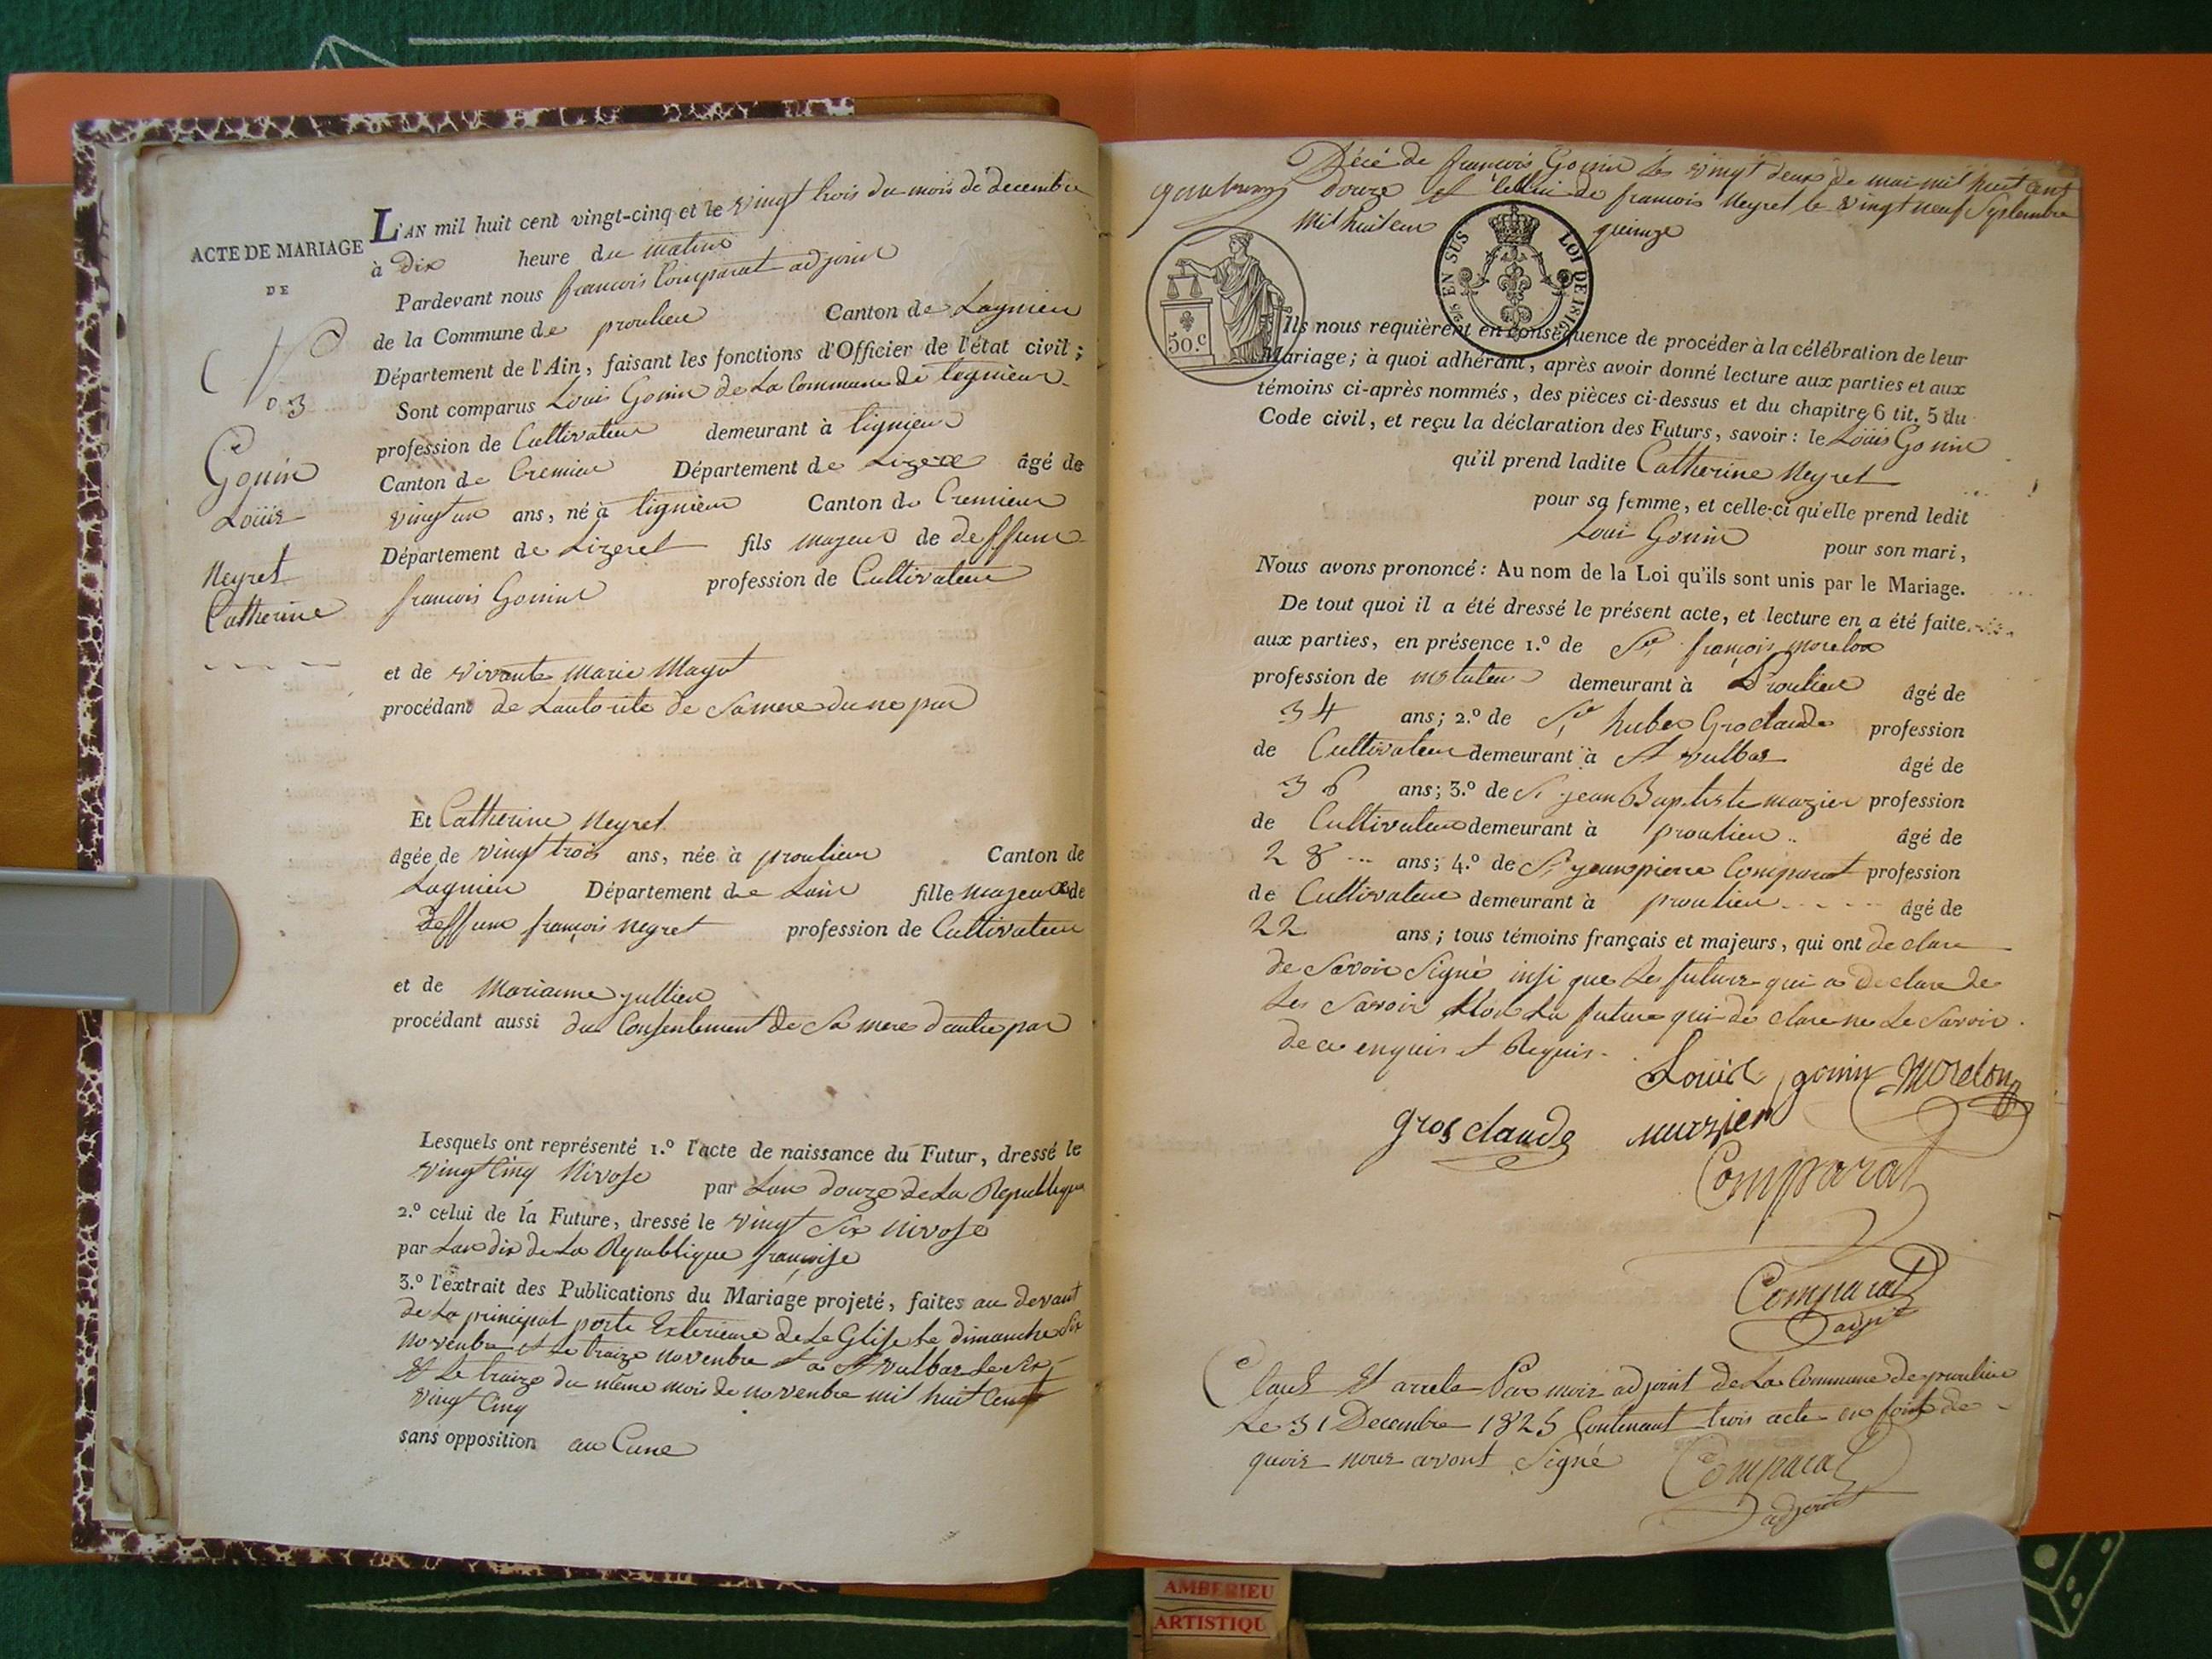 ACTE DE MARIAGE
DE
N
o 3
Gonin
Loüis
Neyret
Catherine
L'AN mil huit cent vingt-cinq et le vingt trois du mois de decembre
à dix heure du matin
Pardevant nous francois Comparat adjoint
de la Commune de proulieu Canton de Lagnieu
Département de l'Ain, faisant les fonctions d'Officier de l'état civil ;
Sont comparus Louis Gonin de La Commune de legnieu
profession de Cultivateur demeurant à lignieu
Canton de Cremieu Département de Lizere âgé de
vingt un ans, né à lignieu Canton de Cremieu
Département de Lizeret fils majeur de deffunt
francois Gonin profession de Cultivateur
et de vivante Marie Mayot
procédant de Lautorite de Sa mere dune par
Et Catherine Neyret
âgée de vingt trois ans, née à proulieu Canton de
Lagnieu Département de Lain fille majeure de
deffunt françois neyret profession de Cultivateur
et de Marianne jullien
procédant aussi du Consentement de Sa mere dautre par
Lesquels ont représenté 1.º l'acte de naissance du Futur, dressé le
vingt Cinq Nivose par Lan douze de La Republique
2.º celui de la Future, dressé le vingt Six nivose
par Lan dix de La Republique françoise
3.º l'extrait des Publications du Mariage projeté, faites au devant
de La principal porte Exterieure de Le Glise le dimanche Six
novenbre et Le traize novenbre et a St vulbas le Six
et Le traize du même mois de novenbre mil huit Cent
vingt Cinq
sans opposition au Cune
Décé de françois Gonin Les vingt deux de mai mil huit Cent
douze et Cellui de francois Neyret le vingt neuf Septembre
Mil huit cen quinze
50.c
25c EN SUS LOI DE 1816
Ils nous requièrent en conséquence de procéder à la célébration de leur
Mariage; à quoi adhérant, après avoir donné lecture aux parties et aux
témoins ci-après nommés, des pièces ci-dessus et du chapitre 6 tit. 5 du
Code civil, et reçu la déclaration des Futurs, savoir : le Loüis Gonin
qu'il prend ladite Catherine Neyret
pour sa femme, et celle-ci qu'elle prend ledit
Loui Gonin pour son mari,
Nous avons prononcé : Au nom de la Loi qu'ils sont unis par le Mariage.
De tout quoi il a été dressé le présent acte, et lecture en a été faite
aux parties, en présence 1.º de Sr françois morelon
profession de instuteur demeurant à Proulieu âgé de
34 ans; 2.º de Sr huber Groclaude profession
de Cultivateur demeurant à St vulbas âgé de
36 ans; 3.º de Sr jean Baptiste mazier profession
de Cultivateur demeurant à proulieu âgé de
28 ans; 4.º de Sr jean pierre Comparat profession
de Cultivateur demeurant à proulieu âgé de
22 ans; tous témoins français et majeurs, qui ont de clare
de Savoir Signé insi que Le future qui a de clare de
Les Savoir Non La future qui dé clare ne Le Savoir
de ce enquis et Requis
Louis gonin Morelon
grosclaude murzier
Comparat
Comparat
adjt
Claut et arrete Par moir adjoint de La Commune de proulieu
Le 31 Decembre 1825 Contenant trois acte en foit de
quoir nour avont Signé Comparat
adjoint
AMBERIEU
ARTISTIQU